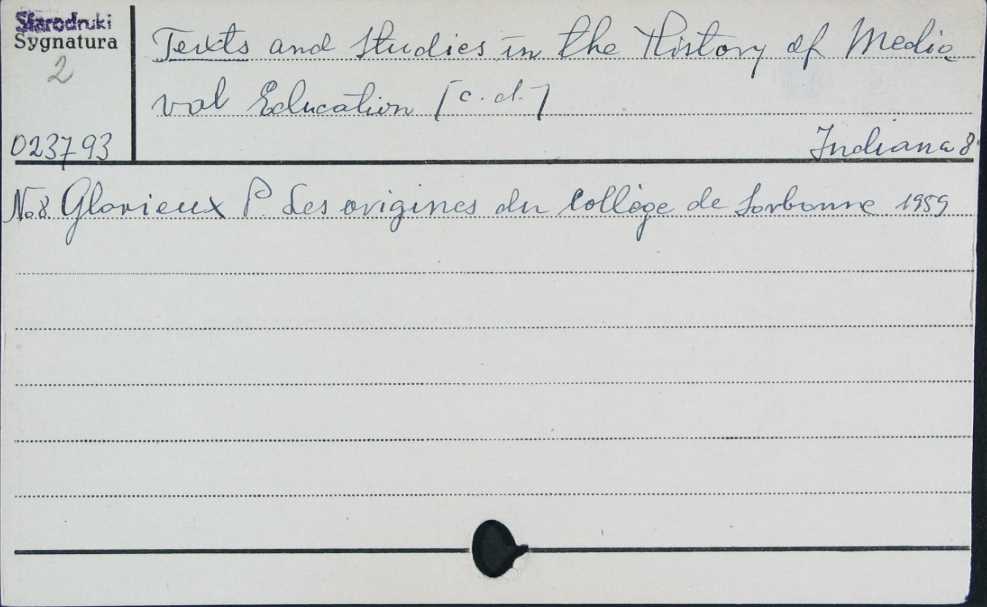 Starodruki
Sygnatura
2
023793
Texts and Studies in the History of Medie
val Education [c. d.]
Indiana 8°
No 8. Glorieux P. Les origines du Collège de Sorbonne 1959